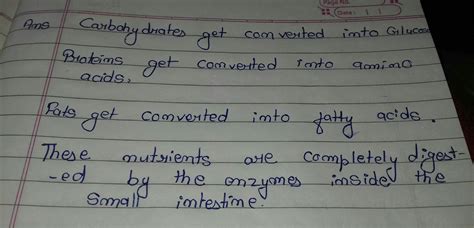 Page No.
Date: 1 1
Ans Carbohydrates get converted into Glucose
Proteins get converted into amino
acids,
Fats get converted into fatty acids.
These nutrients are completely digest-
-ed by the enzymes inside the
Small intestine.